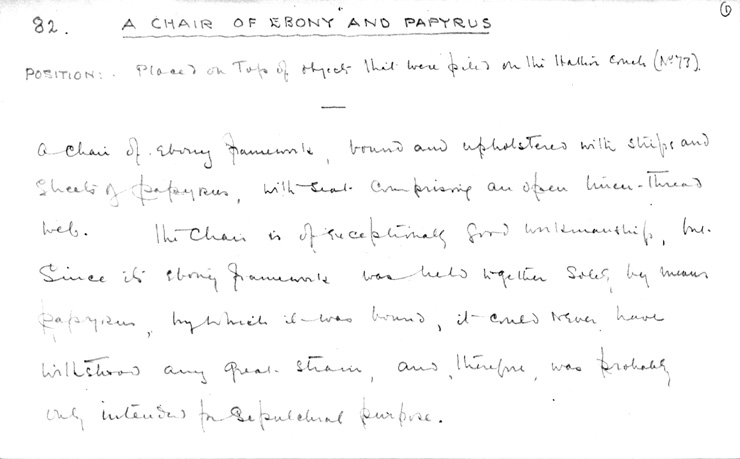 ①
82. A CHAIR OF EBONY AND PAPYRUS
POSITION: Placed on Top of objects that were piled on the Hathor Couch (No 73).
A chair of ebony framework, bound and upholstered with strips and
Sheets of papyrus, with seat comprising an open linen-thread
web. The Chair is of exceptionally good workmanship, but
Since its ebony framework was held together solely by means
papyrus, by which it was bound, it could never have
withstood any great strain, and, therefore, was probably
only intended for Sepulchral purpose.